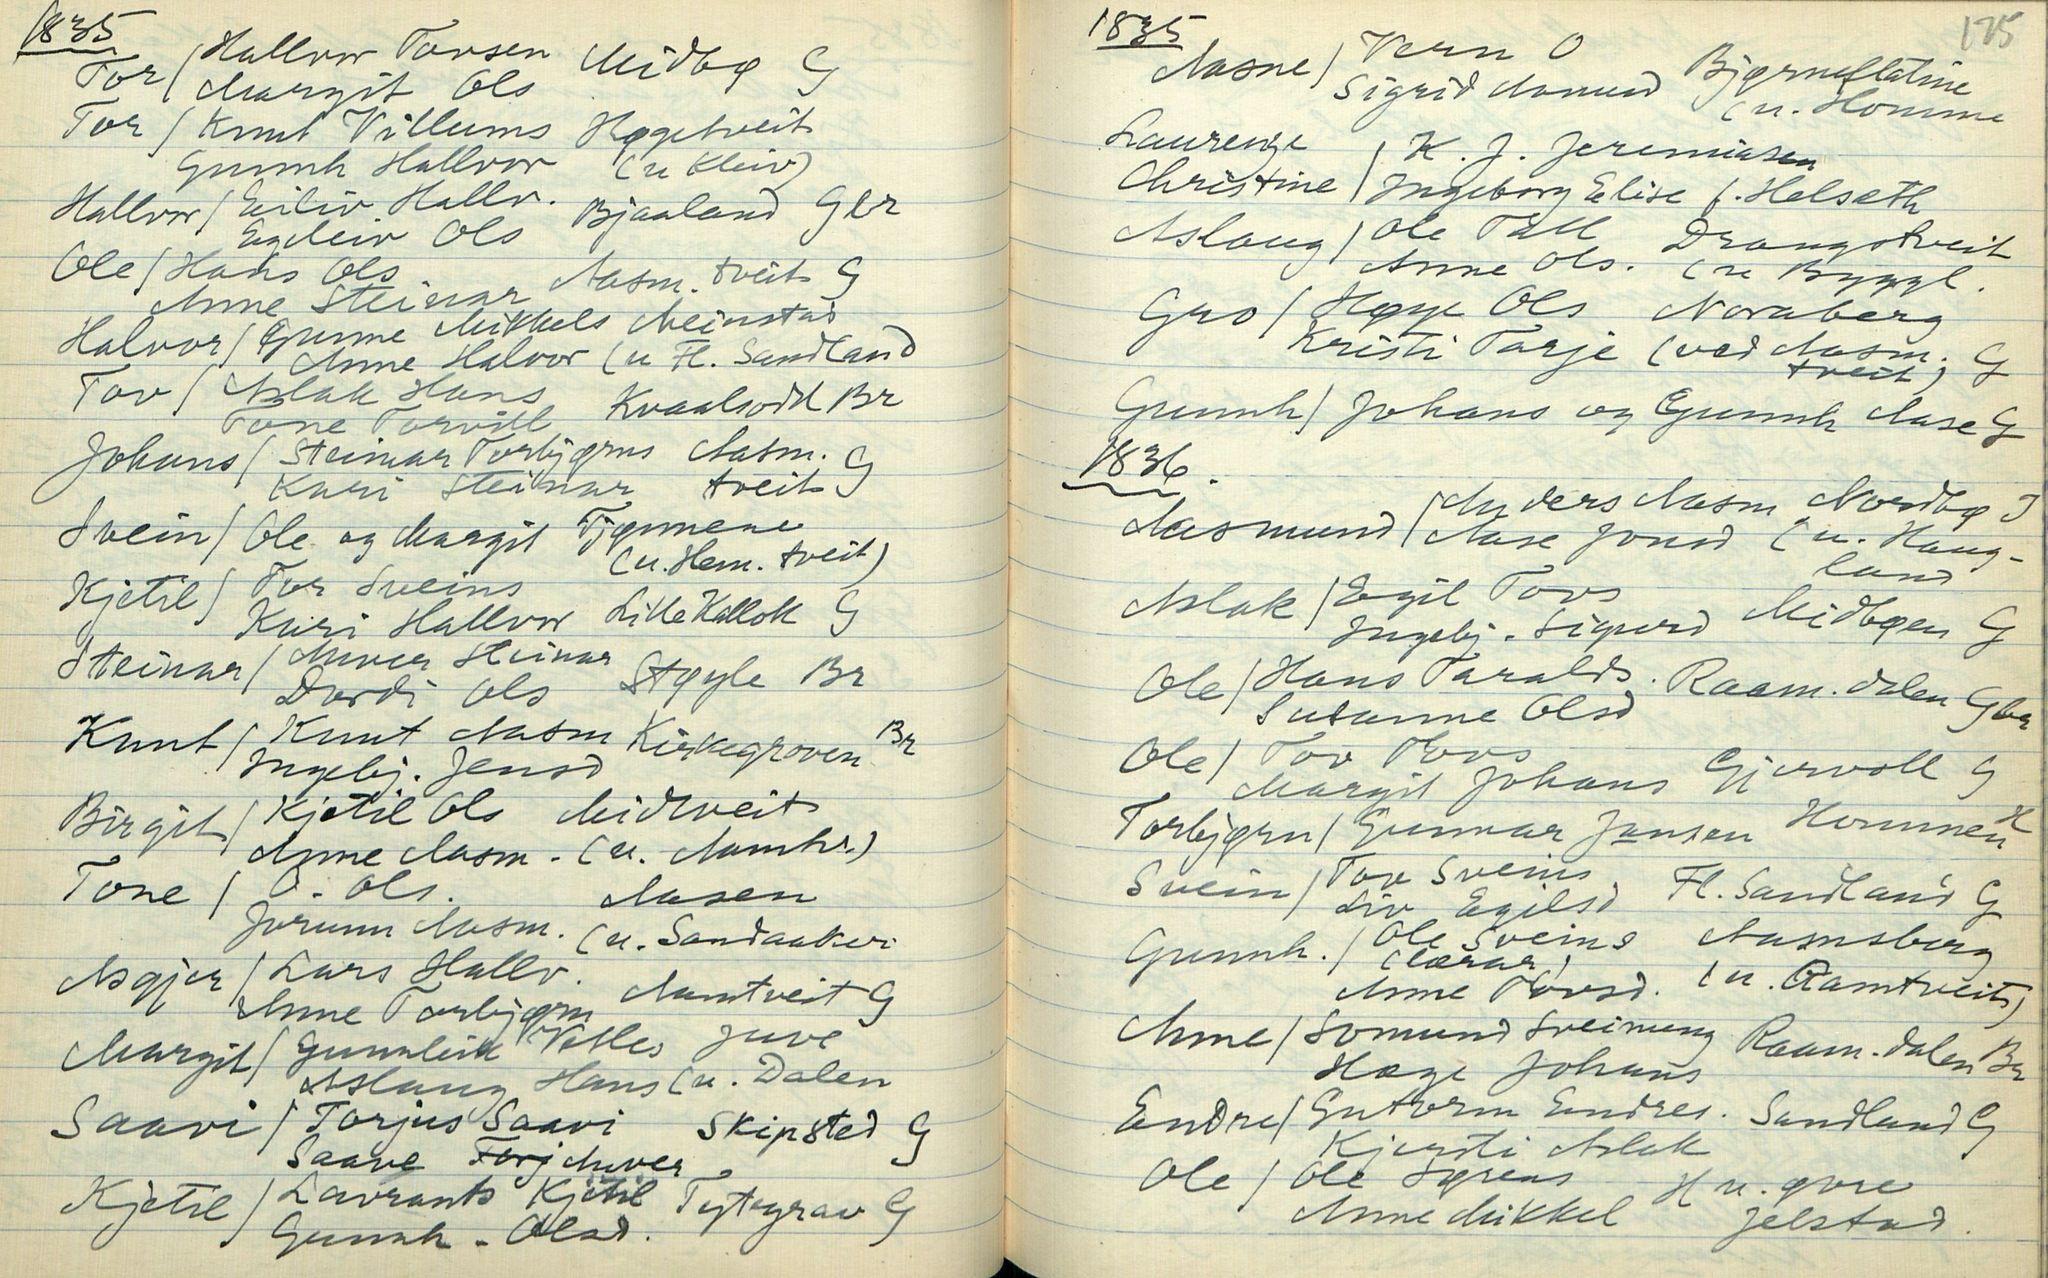 1835
Tor / Hallvor Tovsen Midbø G
Margit Ols
Tor / Knut Villums Høgetveit
Gunnh Hallvor (u Kleiv)
Hallvor / Eiliv Hallv. Bjaaland Gbr
Egeleiv Ols
Ole / Hans Ols Aasm. tveit G
Anne Steinar
Halvor / Gunne Mikkels Meinstad
Anne Halvor (u Fl. Sandland
Tov / Aslak Hans Kvaalsodd Br
Tone Torvill
Johans / Steinar Torbjørns Aasm.
Kari Steinar tveit G
Svein / Ole og Margit Tjønnene
(u. Hem. tveit)
Kjetil / Tor Sveins
Kari Hallvor Lille Kallok G
Steinar / Anver Steinar
Dordi Ols Støyle Br
Knut / Knut Aasm Kirkegroven Br
Ingebj. Jensd
Birgit / Kjetil Ols Midtveit
Anne Aasm. (u. Aamhr.)
Tone / O. Ols. Aasen
Jorunn Aasm. (u. Sandaaker
Asgjer / Lars Hallv.
Anne Torbjørn Aamtveit G
Margit / Gunnleik Vetles Juve
Aslaug Hans (u. Dalen
Saavi / Torjus Saavi Skipsted G
Saave Anver
Kjetil / Lavrants Kjetil Tytegrav G
Gunnh. Olsd.
175
1835
Aasne / Vern O Bjørnestatine
Sigrid Aamund (u. Homme
Laurenze / K. J. Jeremiasen
Christine / Ingeborg Elise f. Helseth
Aslaug / Ole Tall Drangstveit
Anne Ols. (u Byggl.
Gro / Høye Ols Noraberg
Kristi Tarje (ved Aasm. tveit) G
Gunnh / Johans og Gunnh Aase G
1836.
Aasmund / Anders Aasm Nordbø I
Aase Jonsd (u. Haug-
land
Aslak / Egil Tovs
Ingebj. Sigurd Midbøen G
Ole / Hans Taralds. Raam. dalen Gbr
Susanne Olsd
Ole / Tov Tovs
Margit Johans Gjervoll G
Torbjørn / Gunnar Jansen Hommen H
Svein / Tov Sveins Fl. Sandland G
Liv Egilsd
Gunnh. / Ole Sveins Aasmsberg
(Lærar)
Anne Tovsd. (u. Ramtveit)
Anne / Somund Sveinung Raam. dalen Br
Høge Johans
Endre / Gutorm Endres. Sandland G
Kjersti Aslak
Ole / Ole Sørens H u. øvre
Anne Mikkel Jelstad.